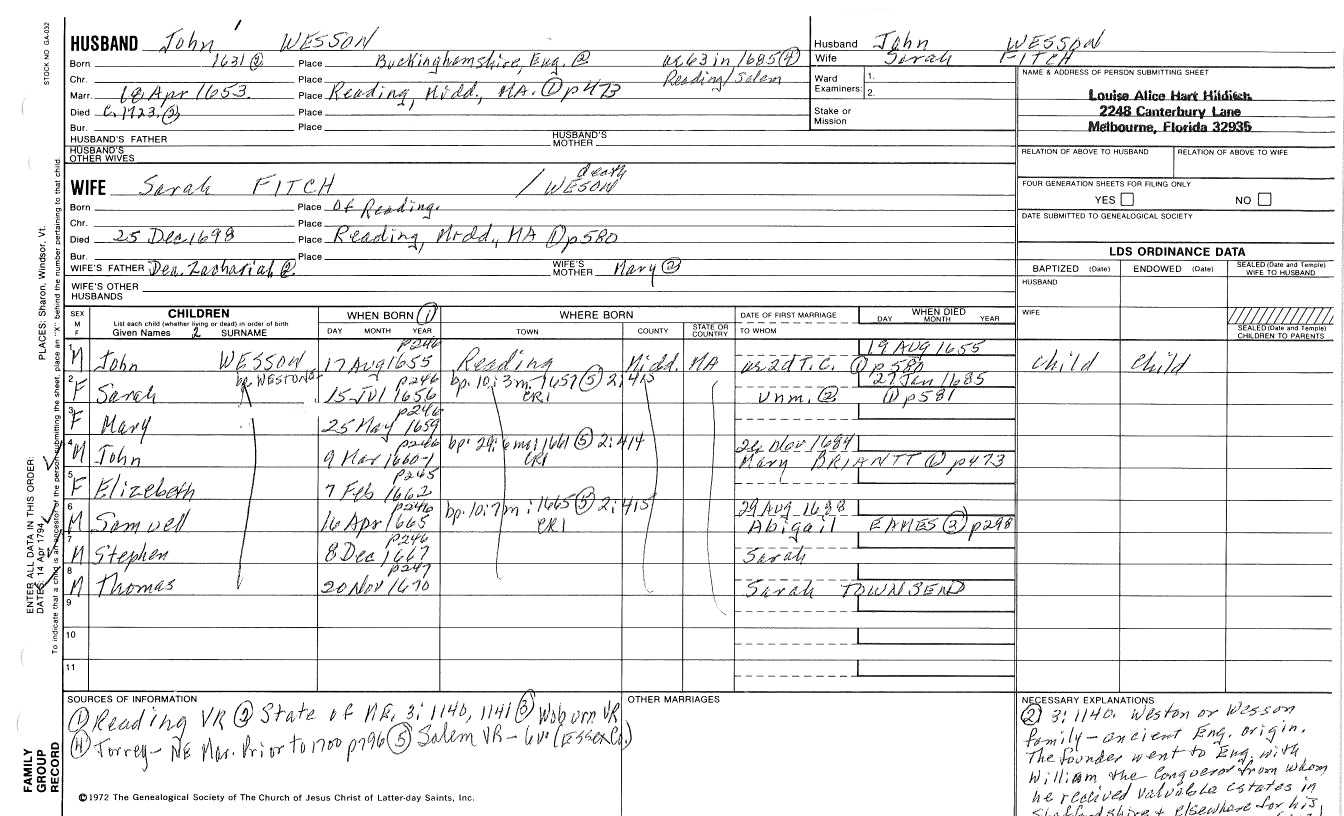 STOCK NO GA-032
HUSBAND John WESSON
Born 1631 ② Place Buckinghamshire, Eng. ② 63 in 1685 ④
Chr. Place Reading/Salem
Marr. 18 Apr 1653. Place Reading, Midd., MA. ① p473
Died C. 1723. ② Place
Bur. Place
HUSBAND'S FATHER HUSBAND'S MOTHER
HUSBAND'S OTHER WIVES
Husband John WESSON
Wife Sarah FITCH
Ward Examiners: 1.
2.
Stake or Mission
NAME & ADDRESS OF PERSON SUBMITTING SHEET
Louise Alice Hart Hilditch
2248 Canterbury Lane
Melbourne, Florida 32935
RELATION OF ABOVE TO HUSBAND RELATION OF ABOVE TO WIFE
FOUR GENERATION SHEETS FOR FILING ONLY
YES NO
DATE SUBMITTED TO GENEALOGICAL SOCIETY
LDS ORDINANCE DATA
BAPTIZED (Date) ENDOWED (Date) SEALED (Date and Temple) WIFE TO HUSBAND
HUSBAND
WIFE
SEALED (Date and Temple) CHILDREN TO PARENTS
death
WIFE Sarah FITCH / WESON
Born Place Of Reading.
Chr. Place
Died 25 Dec 1698 Place Reading, Midd., MA ① p580
Bur. Place
WIFE'S FATHER Dea. Zachariah ② WIFE'S MOTHER Mary ②
WIFE'S OTHER HUSBANDS
SEX M F
CHILDREN
List each child (whether living or dead) in order of birth
Given Names 2 SURNAME
WHEN BORN ①
DAY MONTH YEAR
WHERE BORN
TOWN COUNTY STATE OR COUNTRY
DATE OF FIRST MARRIAGE
TO WHOM
WHEN DIED
DAY MONTH YEAR
p246 19 AUG 1655
1 M John WESSON 17 Aug 1655 Reading Midd. MA 2d T.C. ① p580 child child
bp. WESTON p246 bp. 10: 3m. 1657 ⑤ 2:415 27 Jan 1685
2 F Sarah 15 Jul 1656 CR1 unm. ② ① p581
p246
3 F Mary 25 May 1659
p246 bp. 29: 6m: 1661 ⑤ 2:414 26 Nov 1684
4 M John 9 Mar 1660-1 CR1 Mary BRIANTT ① p473
p245
5 F Elizebeth 7 Feb 1662
p246 bp. 10: 7m: 1665 ⑤ 2:415 29 Aug 1698
6 M Samuell 16 Apr 1665 CR1 Abigail EAMES ③ p298
p246
7 M Stephen 8 Dec 1667 Sarah
p247
8 M Thomas 20 Nov 1670 Sarah TOWNSEND
9
10
11
ENTER ALL DATA IN THIS ORDER:
DATES: 14 Apr 1794
PLACES: Sharon, Windsor, Vt.
To indicate that a child is an ancestor of the person submitting the sheet, place an "X" behind the number pertaining to that child.
SOURCES OF INFORMATION
① Reading VR ② State of NE, 3: 1140, 1141 ③ Woburn VR
④ Torrey - NE Mar. Prior to 1700 p796 ⑤ Salem VR - 6v. (Essex Co.)
OTHER MARRIAGES
NECESSARY EXPLANATIONS
② 3: 1140. Weston or Wesson
family - ancient Eng. origin.
The founder went to Eng. with
William the Conqueror from whom
he recieved valuable estates in
Staffordshire & elsewhere for his
FAMILY GROUP RECORD
©1972 The Genealogical Society of The Church of Jesus Christ of Latter-day Saints, Inc.